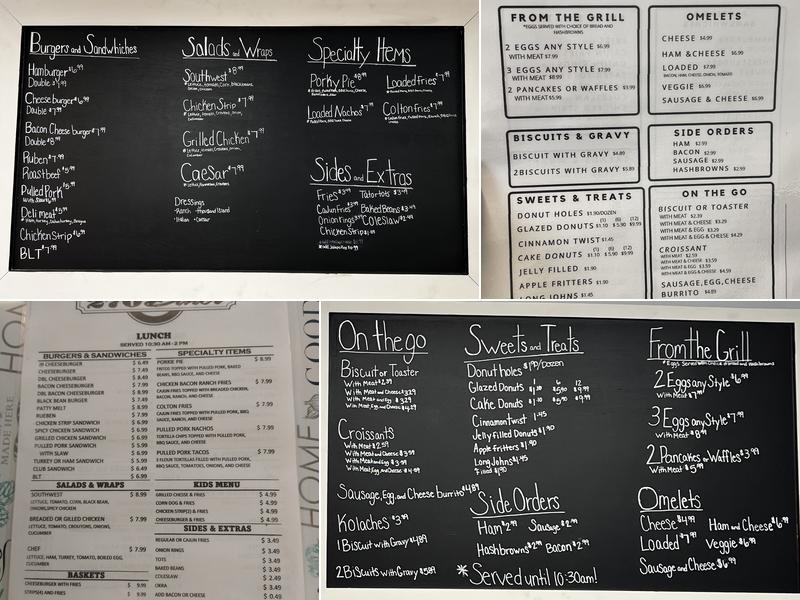 Burgers and Sandwiches
Hamburger $6.99
Cheeseburger $6.99
Double $7.99
Bacon Cheeseburger $7.99
Double $8.99
Ruben $7.99
Roast beef $5.99
Pulled Pork $5.99
Deli meat $5.99
Chicken Strip $6.99
BLT $7.99
Salads and Wraps
Southwest $8.99
Chicken Strip $7.99
Grilled Chicken $7.99
Caesar $7.99
Dressings
Specialty Items
Porky Pie $8.99
Loaded Fries $7.99
Loaded Nachos $7.99
Colton Fries $7.99
Sides and Extras
Fries $3.49
Tatortots $3.49
Cajun Fries
Baked Beans $3.49
Onion Rings
Coleslaw $2.49
Chicken Strip
FROM THE GRILL
*EGGS SERVED WITH CHOICE OF BREAD AND
HASHBROWNS
2 EGGS ANY STYLE $6.99
WITH MEAT $7.99
3 EGGS ANY STYLE $7.99
WITH MEAT $8.99
2 PANCAKES OR WAFFLES $3.99
WITH MEAT $5.99
OMELETS
CHEESE $4.99
HAM & CHEESE $6.99
LOADED $7.99
BACON, HAM, CHEESE, ONION, TOMATO
VEGGIE $6.99
SAUSAGE & CHEESE $6.99
BISCUITS & GRAVY
BISCUIT WITH GRAVY $4.89
2 BISCUITS WITH GRAVY $5.89
SIDE ORDERS
HAM $2.99
BACON $2.99
SAUSAGE $2.99
HASHBROWNS $2.99
SWEETS & TREATS
DONUT HOLES $1.90/DOZEN
(1) (6) (12)
GLAZED DONUTS $1.10 $5.90 $9.99
CINNAMON TWIST $1.45
(1) (6) (12)
CAKE DONUTS $1.10 $5.90 $9.99
JELLY FILLED $1.90
APPLE FRITTERS $1.90
LONG JOHNS $1.45
ON THE GO
BISCUIT OR TOASTER
WITH MEAT $2.39
WITH MEAT & CHEESE $3.29
WITH MEAT & EGG $3.29
WITH MEAT, EGG & CHEESE $4.29
CROISSANT
WITH MEAT $2.59
WITH MEAT & CHEESE $3.59
WITH MEAT & EGG $3.59
WITH MEAT, EGG & CHEESE $4.59
SAUSAGE, EGG, CHEESE
BURRITO $4.89
LUNCH
SERVED 10:30 AM - 2 PM
BURGERS & SANDWICHES
CHEESEBURGER $ 7.49
DBL CHEESEBURGER $ 8.49
BACON CHEESEBURGER $ 7.99
DBL BACON CHEESEBURGER $ 8.99
BLACK BEAN BURGER $ 7.49
PATTY MELT $ 8.99
RUEBEN $ 7.99
CHICKEN STRIP SANDWICH $ 6.99
SPICY CHICKEN SANDWICH $ 6.99
GRILLED CHICKEN SANDWICH $ 6.99
PULLED PORK SANDWICH $ 5.99
WITH SLAW $ 5.99
TURKEY OR HAM SANDWICH $ 5.99
CLUB SANDWICH $ 6.49
BLT $ 6.99
SALADS & WRAPS
SOUTHWEST $ 8.99
LETTUCE, TOMATO, CORN, BLACK BEAN,
ONION, SPICY CHICKEN
BREADED OR GILLED CHICKEN $ 7.99
LETTUCE, TOMATO, CROUTONS, ONIONS,
CUCUMBER
CHEF $ 7.99
LETTUCE, HAM, TURKEY, TOMATO, BOILED EGG,
CUCUMBER
BASKETS
CHEESEBURGER WITH FRIES $ 9.99
STRIPS(4) AND FRIES $ 9.99
SPECIALTY ITEMS
PORKIE PIE $ 8.99
FRITOS TOPPED WITH PULLED PORK, BAKED
BEANS, BBQ SAUCE, AND CHEESE
CHICKEN BACON RANCH FRIES $ 7.99
CAJUN FRIES TOPPED WITH BREADED CHICKEN,
BACON, RANCH, AND CHEESE
COLTON FRIES $ 7.99
CAJUN FRIES TOPPED WITH PULLED PORK, BBQ
SAUCE, RANCH, AND CHEESE
PULLED PORK NACHOS $ 7.99
TORTILLA CHIPS TOPPED WITH PULLED PORK,
BBQ SAUCE, ONIONS, AND CHEESE
PULLED PORK TACOS $ 7.99
3 FLOUR TORTILLAS FILLED WITH PULLED PORK,
BBQ SAUCE, TOMATOES, ONIONS, AND CHEESE
KIDS MENU
GRILLED CHEESE & FRIES $ 4.99
CORN DOG & FRIES $ 4.99
CHICKEN STRIP(2) & FRIES $ 4.99
CHEESEBURGER & FRIES $ 4.99
SIDES & EXTRAS
REGULAR OR CAJUN FRIES $ 3.49
ONION RINGS $ 3.49
TOTS $ 3.49
BAKED BEANS $ 3.49
COLESLAW $ 2.49
OKRA $ 3.49
ADD BACON OR CHEESE $ 0.49
MADE HERE
HOME
HOME
COOK
On the go
Biscuit or Toaster
With Meat $2.39
With Meat and Cheese $3.29
With Meat and Egg $3.29
With Meat, Egg and Cheese $4.29
Croissants
With Meat $2.59
With Meat and Cheese $3.59
With Meat and Egg $3.59
With Meat, Egg and Cheese $4.59
Sausage, Egg, and Cheese burrito $4.89
Kolaches $3.99
1 Biscuit with Gravy $4.89
2 Biscuits with Gravy $5.89
Sweets and Treats
Donut holes $1.90/dozen
1 6 12
Glazed Donuts $1.10 $5.90 $9.99
Cake Donuts $1.10 $5.90 $9.99
Cinnamon Twist $1.45
Jelly Filled Donuts $1.90
Apple fritters $1.90
Long Johns $1.45
*Filled $1.90
Side Orders
Ham $2.99 Sausage $2.99
Hashbrowns $2.99 Bacon $2.99
*Served until 10:30am!
From the Grill
*Eggs Served with Choice of Bread and Hashbrowns
2 Eggs any Style $6.99
With Meat $7.99
3 Eggs any Style $7.99
With Meat $8.99
2 Pancakes or Waffles $3.99
With Meat $5.99
Omelets
Cheese $4.99 Ham and Cheese $6.99
Loaded $7.99 Veggie $6.99
Sausage and Cheese $6.99